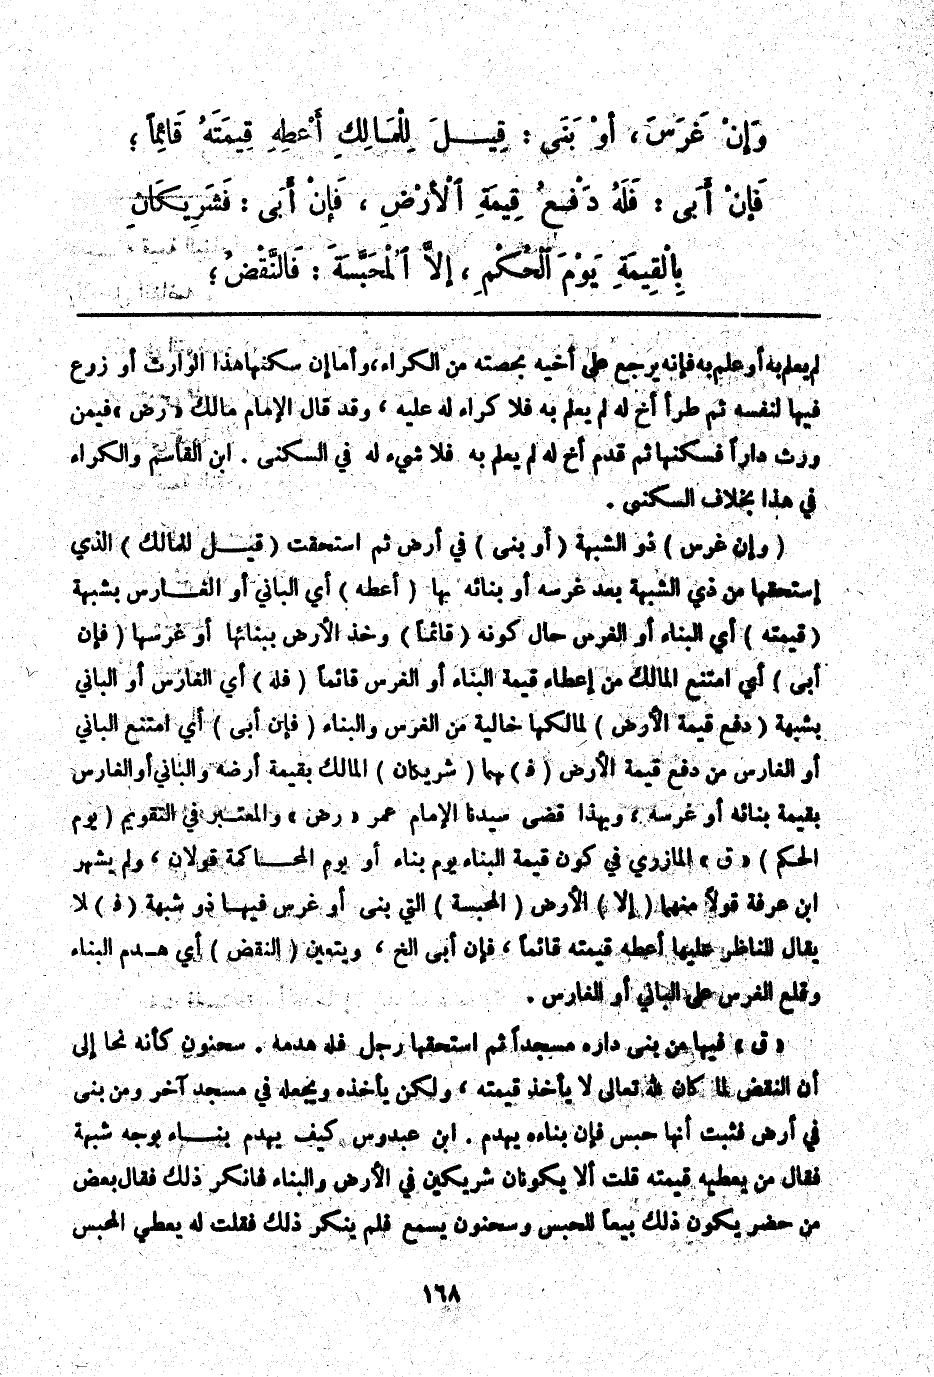 وَإِنْ غَرَسَ ، أَوْ بَنَى : قِيــلَ لِلْمَالِكِ أَعْطِهِ قِيمَتَهُ قَائِماً ؛
فَإِنْ أَبَى : فَلَهُ دَفْعُ قِيمَةِ ٱلْأَرْضِ ، فَإِنْ أَبَى : فَشَرِيكَانِ
بِالْقِيمَةِ يَوْمَ ٱلْحُكْمِ ، إِلاَّ ٱلْمُحَبَّسَةَ : فَالنَّقْضُ ؛
لم يعلم به أو علم به فإنه يرجع على أخيه بحصته من الكراء ، وأما إن سكنها هذا الوارث أو زرع
فيها لنفسه ثم طرأ أخ له لم يعلم به فلا كراء له عليه ، وقد قال الإمام مالك « رض » فيمن
ورث داراً فسكنها ثم قدم أخ له لم يعلم به فلا شيء له في السكنى . ابن القاسم والكراء
في هذا بخلاف السكنى .
( وإن غرس ) ذو الشبهة ( أو بنى ) في أرض ثم استحقت ( قيــل للمالك ) الذي
إستحقها من ذي الشبهة بعد غرسه أو بنائه بها ( أعطه ) أي الباني أو الغــارس بشبهة
( قيمته ) أي البناء أو الغرس حال كونه ( قائماً ) وخذ الأرض ببنائها أو غرسها ( فإن
أبى ) أي امتنع المالك من إعطاء قيمة البناء أو الغرس قائماً ( فله ) أي الغارس أو الباني
بشبهة ( دفع قيمة الأرض ) لمالكها خالية من الغرس والبناء ( فإن أبى ) أي امتنع الباني
أو الغارس من دفع قيمة الأرض ( فـ ) هما ( شريكان ) المالك بقيمة أرضه والباني أو الغارس
بقيمة بنائه أو غرسه ، وبهذا قضى سيدنا الإمام عمر « رض » والمعتــبر في التقويم ( يوم
الحكم ) « ق » المازري في كون قيمة البناء يوم بناء أو يوم المحــاكمة قولان ، ولم يشهر
ابن عرفة قولاً منهما ( إلا ) الأرض ( المحبسة ) التي بنى أو غرس فيهــا ذو شبهة ( فـ ) لا
يقال للناظر عليها أعطه قيمته قائماً ، فإن أبى الخ ، ويتعين ( النقض ) أي هــدم البناء
وقلع الغرس على الباني أو الغارس .
« ق » فيها من بنى داره مسجداً ثم استحقها رجل فله هدمه . سحنون كأنه نحا إلى
أن النقض لما كان لله تعالى لا يأخذ قيمته ، ولكن يأخذه ويجعله في مسجد آخر ومن بنى
في أرض فثبت أنها حبس فإن بناءه يهدم . ابن عبدوس كيف يهدم بنــاء بوجه شبهة
فقال من يعطيه قيمته قلت ألا يكونان شريكين في الأرض والبناء فانكر ذلك فقال بعض
من حضر يكون ذلك بيعاً للحبس وسحنون يسمع فلم ينكر ذلك فقلت له يعطي المحبس
١٦٨